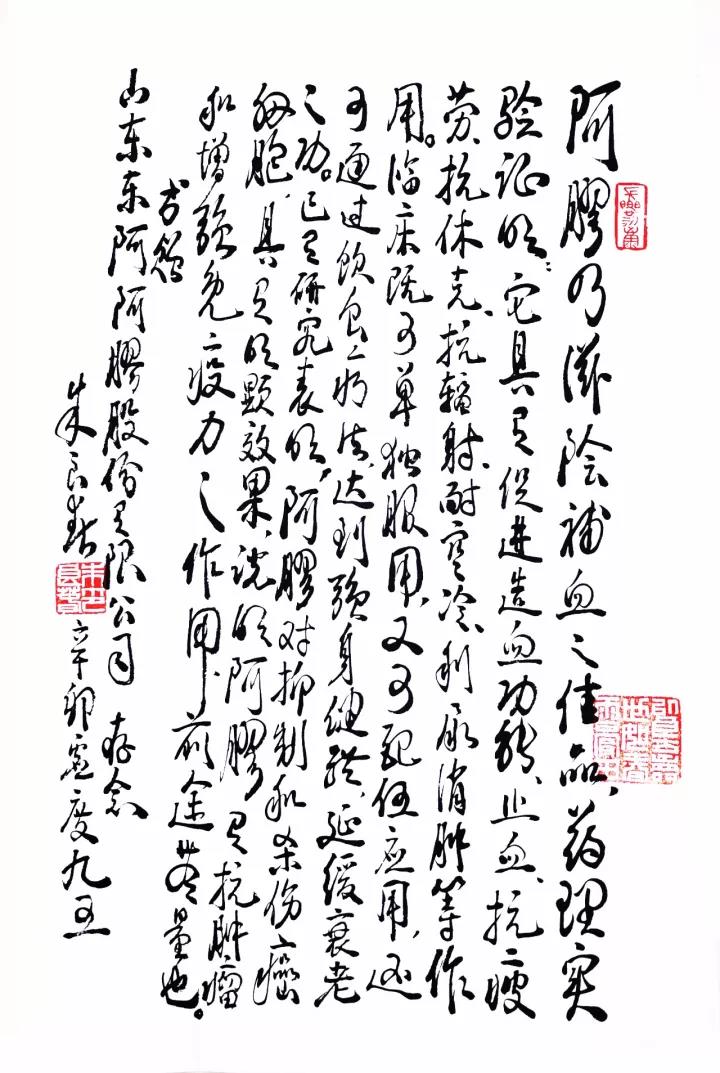 阿膠乃滋陰補血之佳品,药理实
验证明:它具有促进造血功能、止血、抗疲
劳、抗休克、抗辐射、耐寒冷、利尿消肿等作
用。临床既可单独服用,又可配伍应用,还
可通过饮食疗法,达到强身健体、延缓衰老
之功。已有研究表明,阿膠对抑制和杀伤癌
细胞,具有明顯效果,说明阿膠有抗肿瘤
和增强免疫力之作用,前途無量也。
山东东阿阿膠股份有限公司 存念
朱良春 辛卯虚度九五